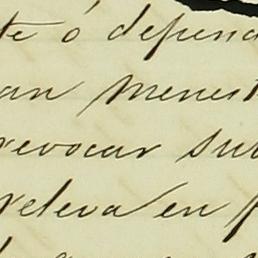 te ó depend
an menest
revocar su
releva en f